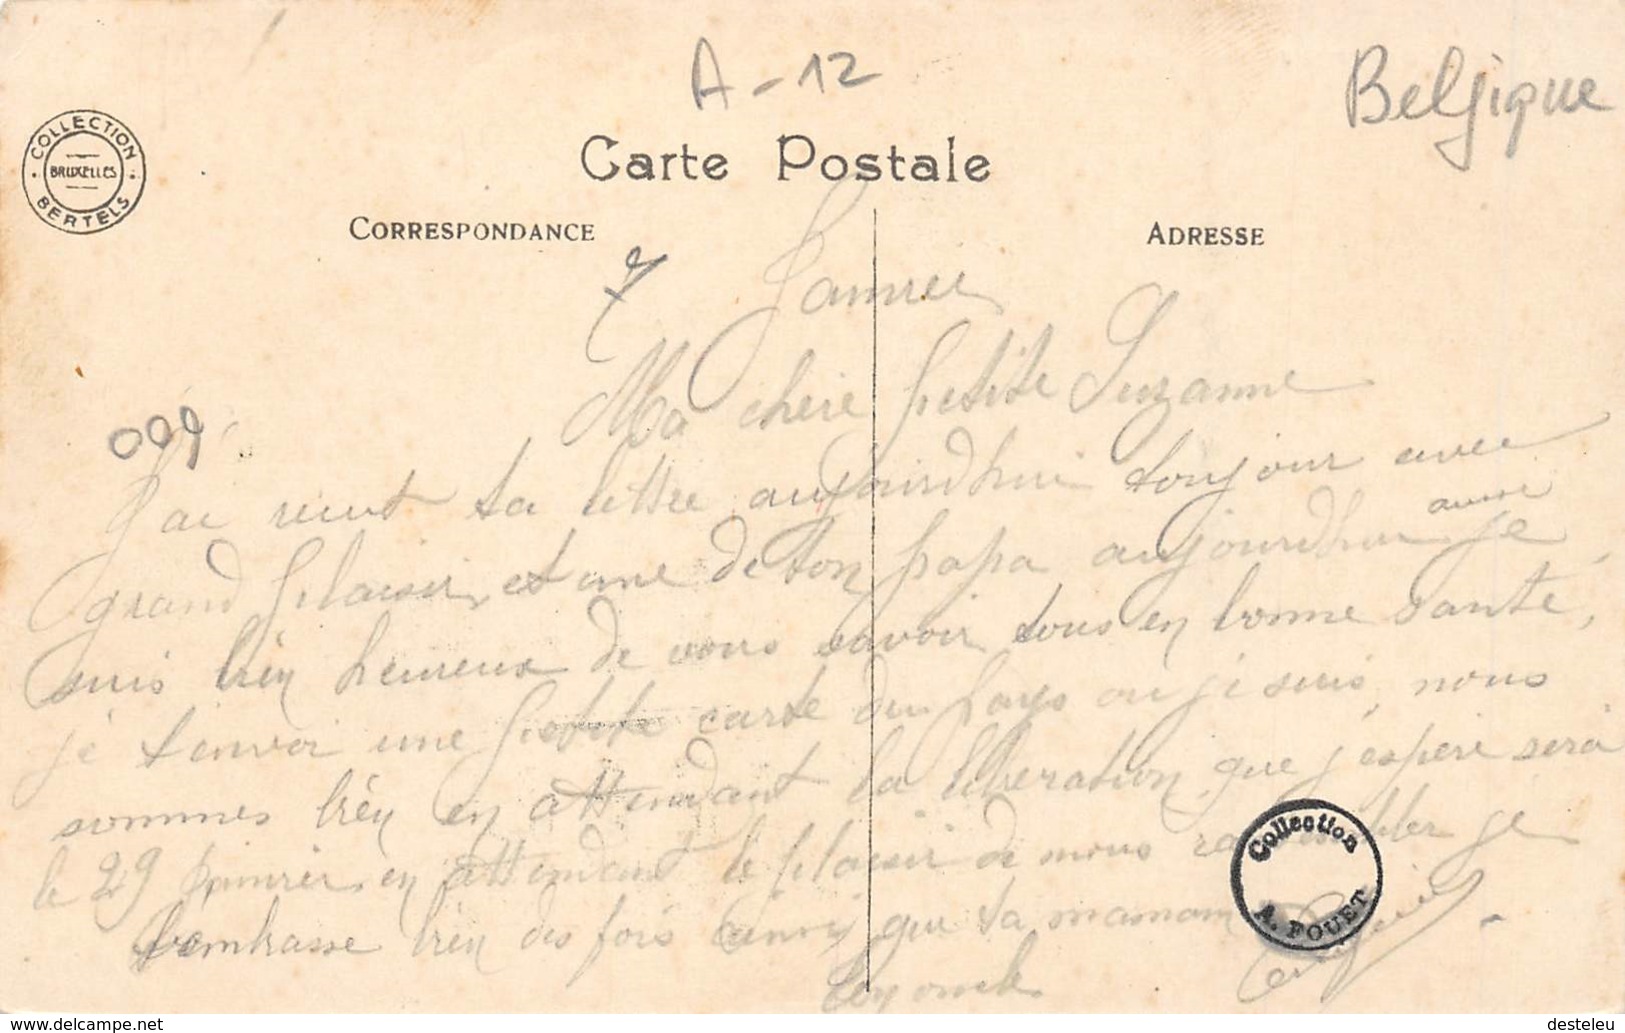 A-12
Belgique
COLLECTION
BRUXELLES
BERTELS
Carte Postale
CORRESPONDANCE
ADRESSE
7 Janvier
Ma chère petite Suzanne
009
J'ai reçut ta lettre aujourdhui toujour avec
grand plaisir et une de ton papa aujourdhui aussi je
suis bien heureux de vous savoir tous en bonne santé,
je t'envoi une petite carte du pays ou je suis, nous
sommes bien en attendant la liberation que j'espere sera
le 29 Janvier en attendant le plaisir de nous rassembler je
t'embrasse bien des fois ainsi que ta maman
ton oncle
Collection
A. FOUET
www.delcampe.net
desteleu